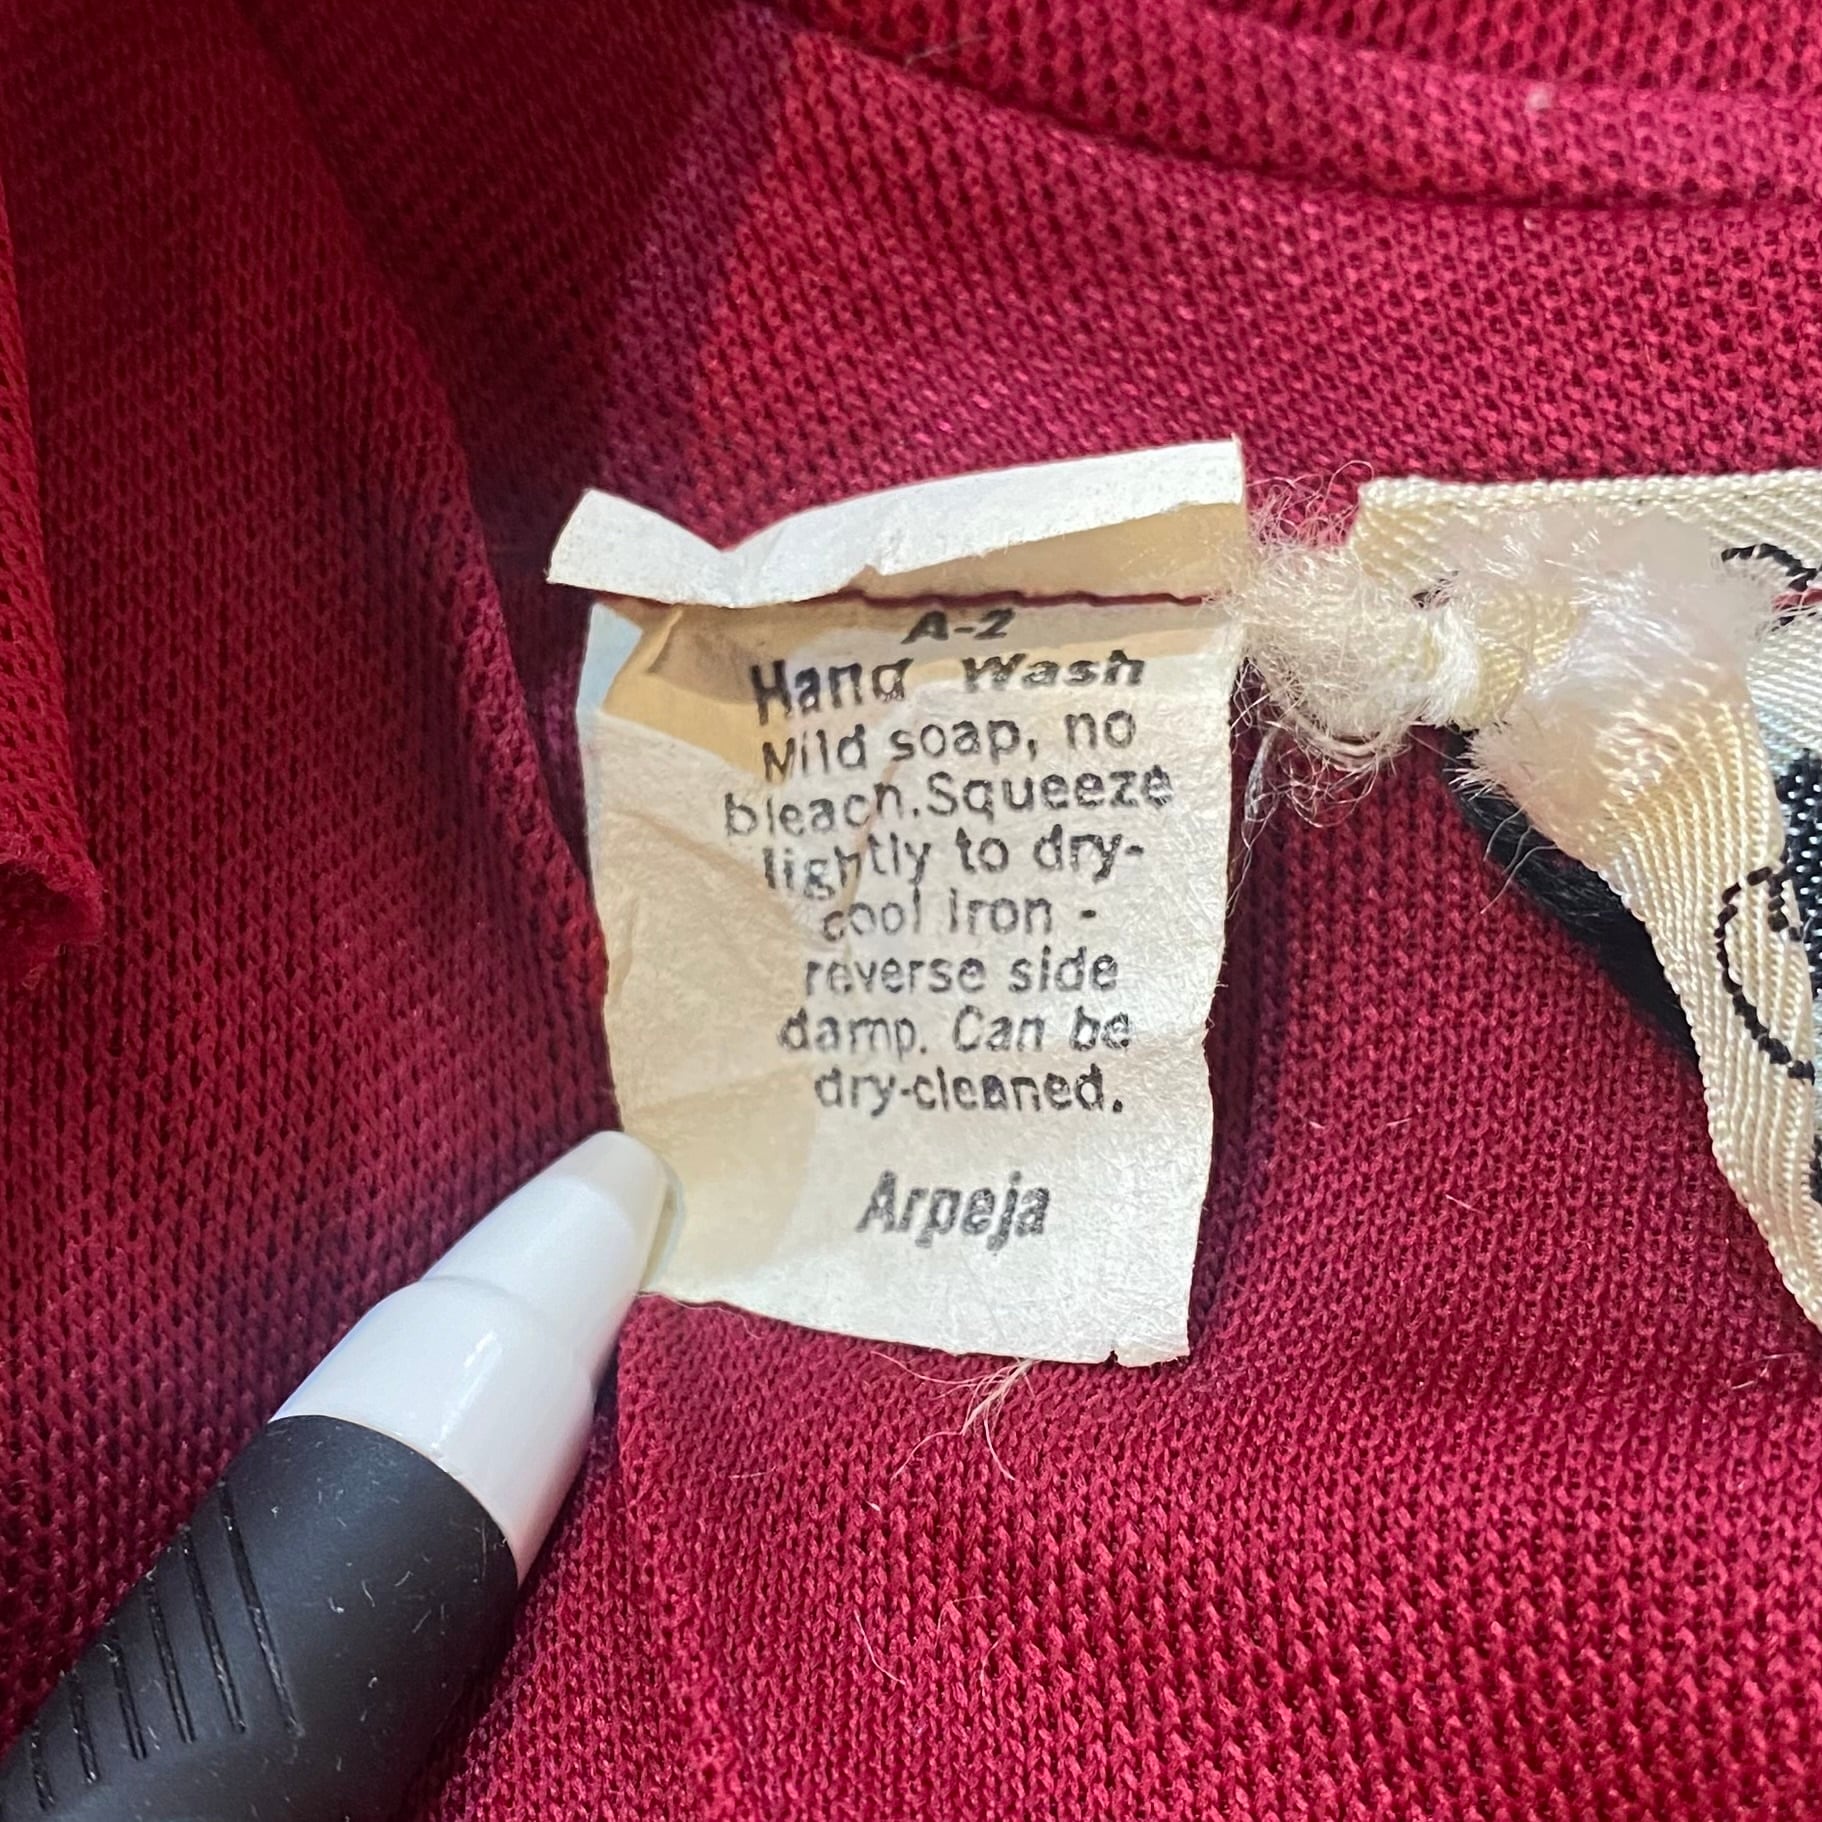 A-2
Hand Wash
Mild soap, no
bleach. Squeeze
lightly to dry-
cool iron -
reverse side
damp. Can be
dry-cleaned.
Arpeja